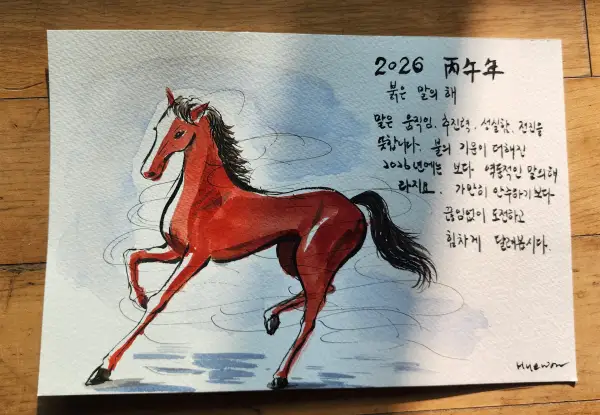 2026 丙午年
붉은 말의 해
말은 움직임, 추진력, 성실함, 전진을
뜻합니다. 불의 기운이 더해진
2026년에는 보다 역동적인 말의해
라지요. 가만히 안주하기보다
끊임없이 도전하고
힘차게 달려봅시다.
Hyewon